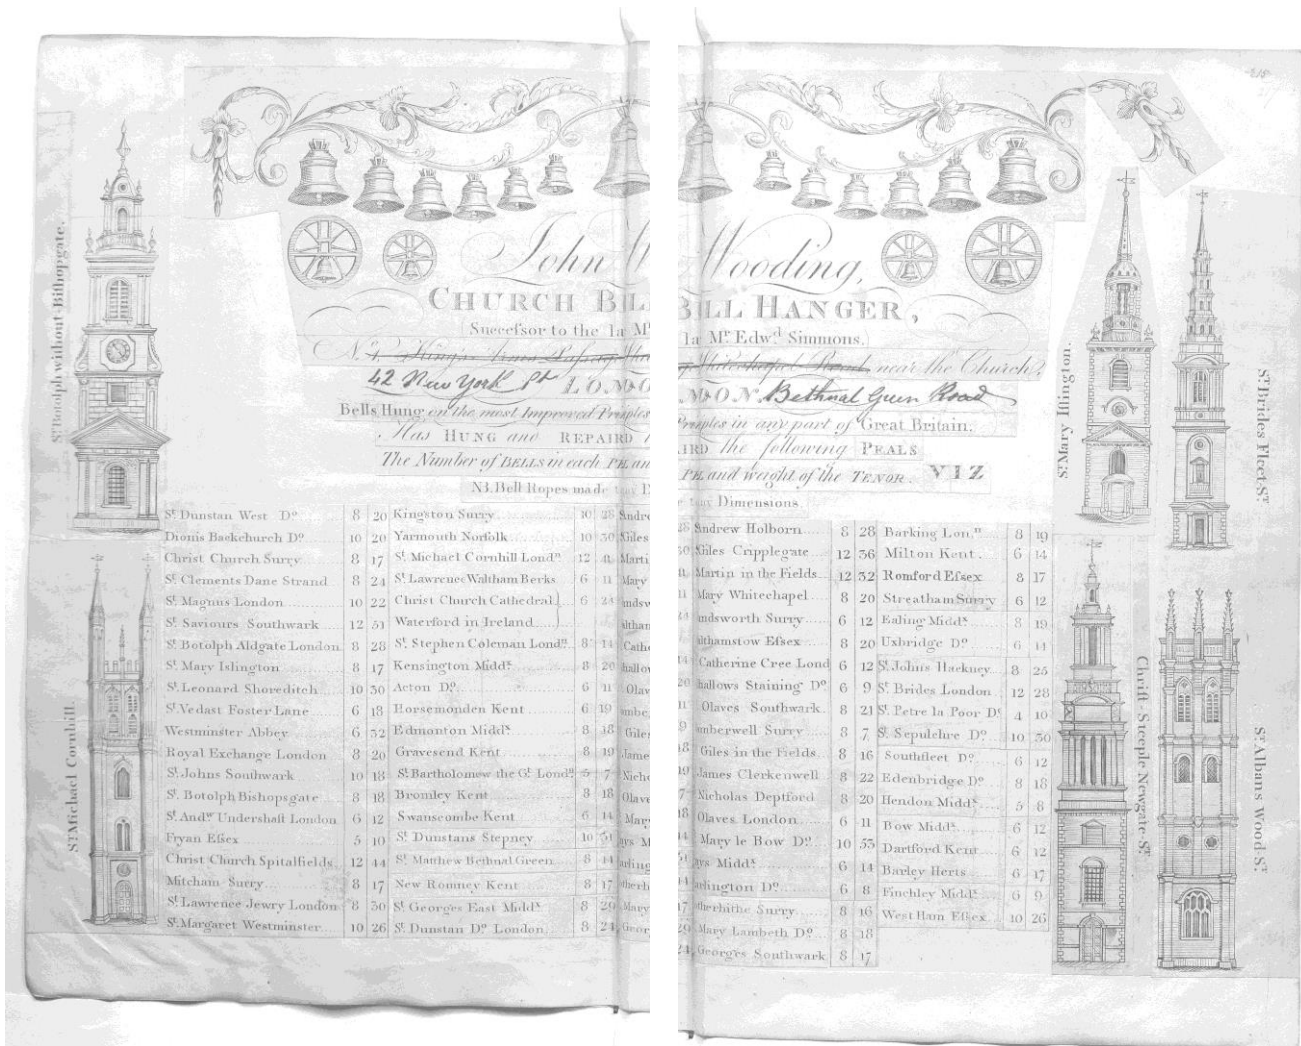 St. Botolph without Bishopgate.
St. Michael Cornhill.
John W
CHURCH BEL
Succeſsor to the la Mr
No. 4 King's Arms Paſsag
42 New York St LONDO
Bells Hung on the most Improved Prinsples
Has HUNG and REPAIRD
The Number of BELLS in each PE an
NB. Bell Ropes made
St. Dunstan West Do. 8 20
Dionis Backchurch Do. 10 20
Christ Church Surry 8 17
St. Clements Dane Strand 8 24
St. Magnus London 10 22
St. Saviours Southwark 12 51
St. Botolph Aldgate London 8 28
St. Mary Islington 8 17
St. Leonard Shoreditch 10 30
St. Vedast Foster Lane 6 18
Westminster Abbey 6 32
Royal Exchange London 8 20
St. Johns Southwark 10 18
St. Botolph Bishopsgate 8 18
St. Andw. Undershaft London 6 12
Fryan Eſsex 5 10
Christ Church Spitalfields 12 44
Mitcham Surry 8 17
St. Lawrence Jewry London 8 30
St. Margaret Westminster 10 26
Kingston Surry 10 28
Yarmouth Norfolk 10 30
St. Michael Cornhill Londn. 12 41
St. Lawrence Waltham Berks 6 11
Christ Church Cathedral 6 23
Waterford in Ireland
St. Stephen Coleman Londn. 8 14
Kensington Middx. 8 20
Acton Do. 6 11
Horsemonden Kent 6 19
Edmonton Middx. 8 18
Gravesend Kent 8 19
St. Bartholomew the Gt. Londn. 5 7
Bromley Kent 8 18
Swanscombe Kent 6 14
St. Dunstans Stepney 10 31
St. Matthew Bethnal Green 8 14
New Romney Kent 8 17
St. Georges East Middx. 8 29
St. Dunstan Do. London 8 24
Wooding,
BELL HANGER,
la Mr. Edwd. Simmons.
Whitechapel Road, near the Church,
NDON. Bethnal Green Road
Prinsples in any part of Great Britain.
IRD the following PEALS
PE and weight of the TENOR. VIZ
Dimensions
Andrew Holborn 8 28
Giles Cripplegate 12 36
Martin in the Fields 12 32
Mary Whitechapel 8 20
andsworth Surry 6 12
althamstow Eſsex 8 20
Catherine Cree Lond 6 12
hallows Staining Do. 6 9
Olaves Southwark 8 21
amberwell Surry 8 7
Giles in the Fields 8 16
James Clerkenwell 8 22
Nicholas Deptford 8 20
Olaves London 6 11
Mary le Bow Do. 10 53
ays Middx. 6 14
arlington Do. 6 8
otherhithe Surry 8 16
Mary Lambeth Do. 8 18
Georges Southwark 8 17
Barking Lon.n 8 19
Milton Kent 6 14
Romford Eſsex 8 17
Streatham Surry 6 12
Ealing Middx. 8 19
Uxbridge Do. 6 14
St. Johns Hackney 8 25
St. Brides London 12 28
St. Petre la Poor Do. 4 10
St. Sepulchre Do. 10 30
Southfleet Do. 6 12
Edenbridge Do. 8 18
Hendon Middx. 5 8
Bow Middx. 6 12
Dartford Kent 6 12
Barley Herts 6 17
Finchley Middx. 6 9
West Ham Eſsex 10 26
St. Mary Iſlington.
St. Brides Fleet St.
Chriſt-Steeple Newgate-St.
St. Albans Wood St.